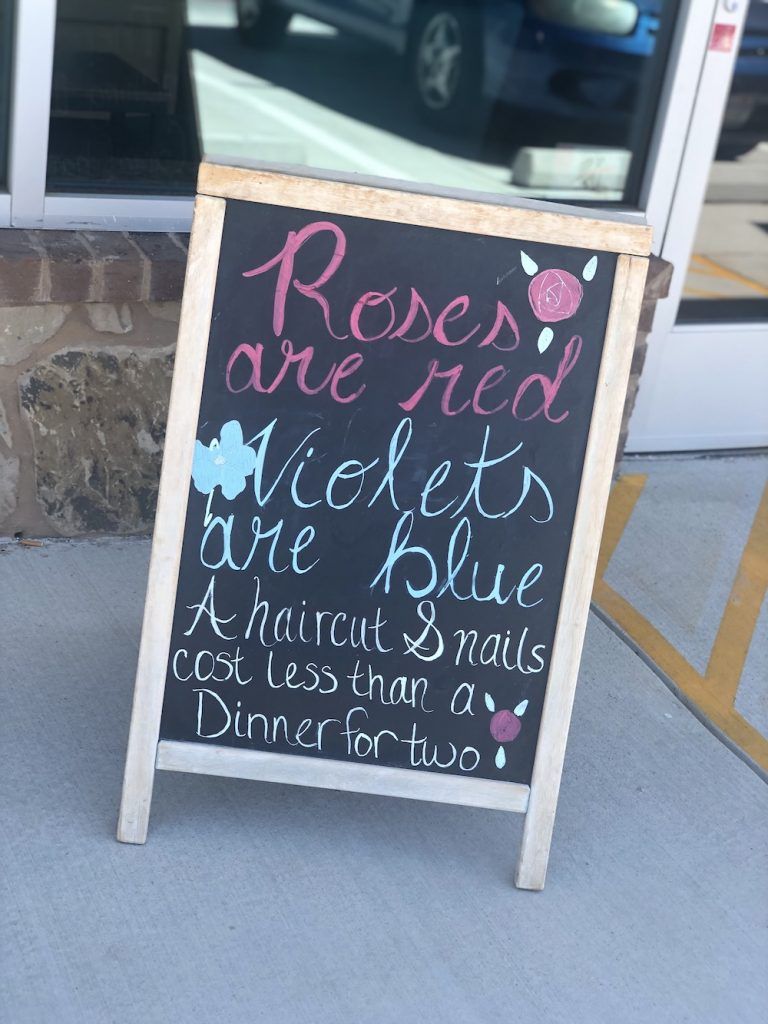 Roses
are red
Violets
are blue
A haircut & nails
cost less than a
Dinner for two